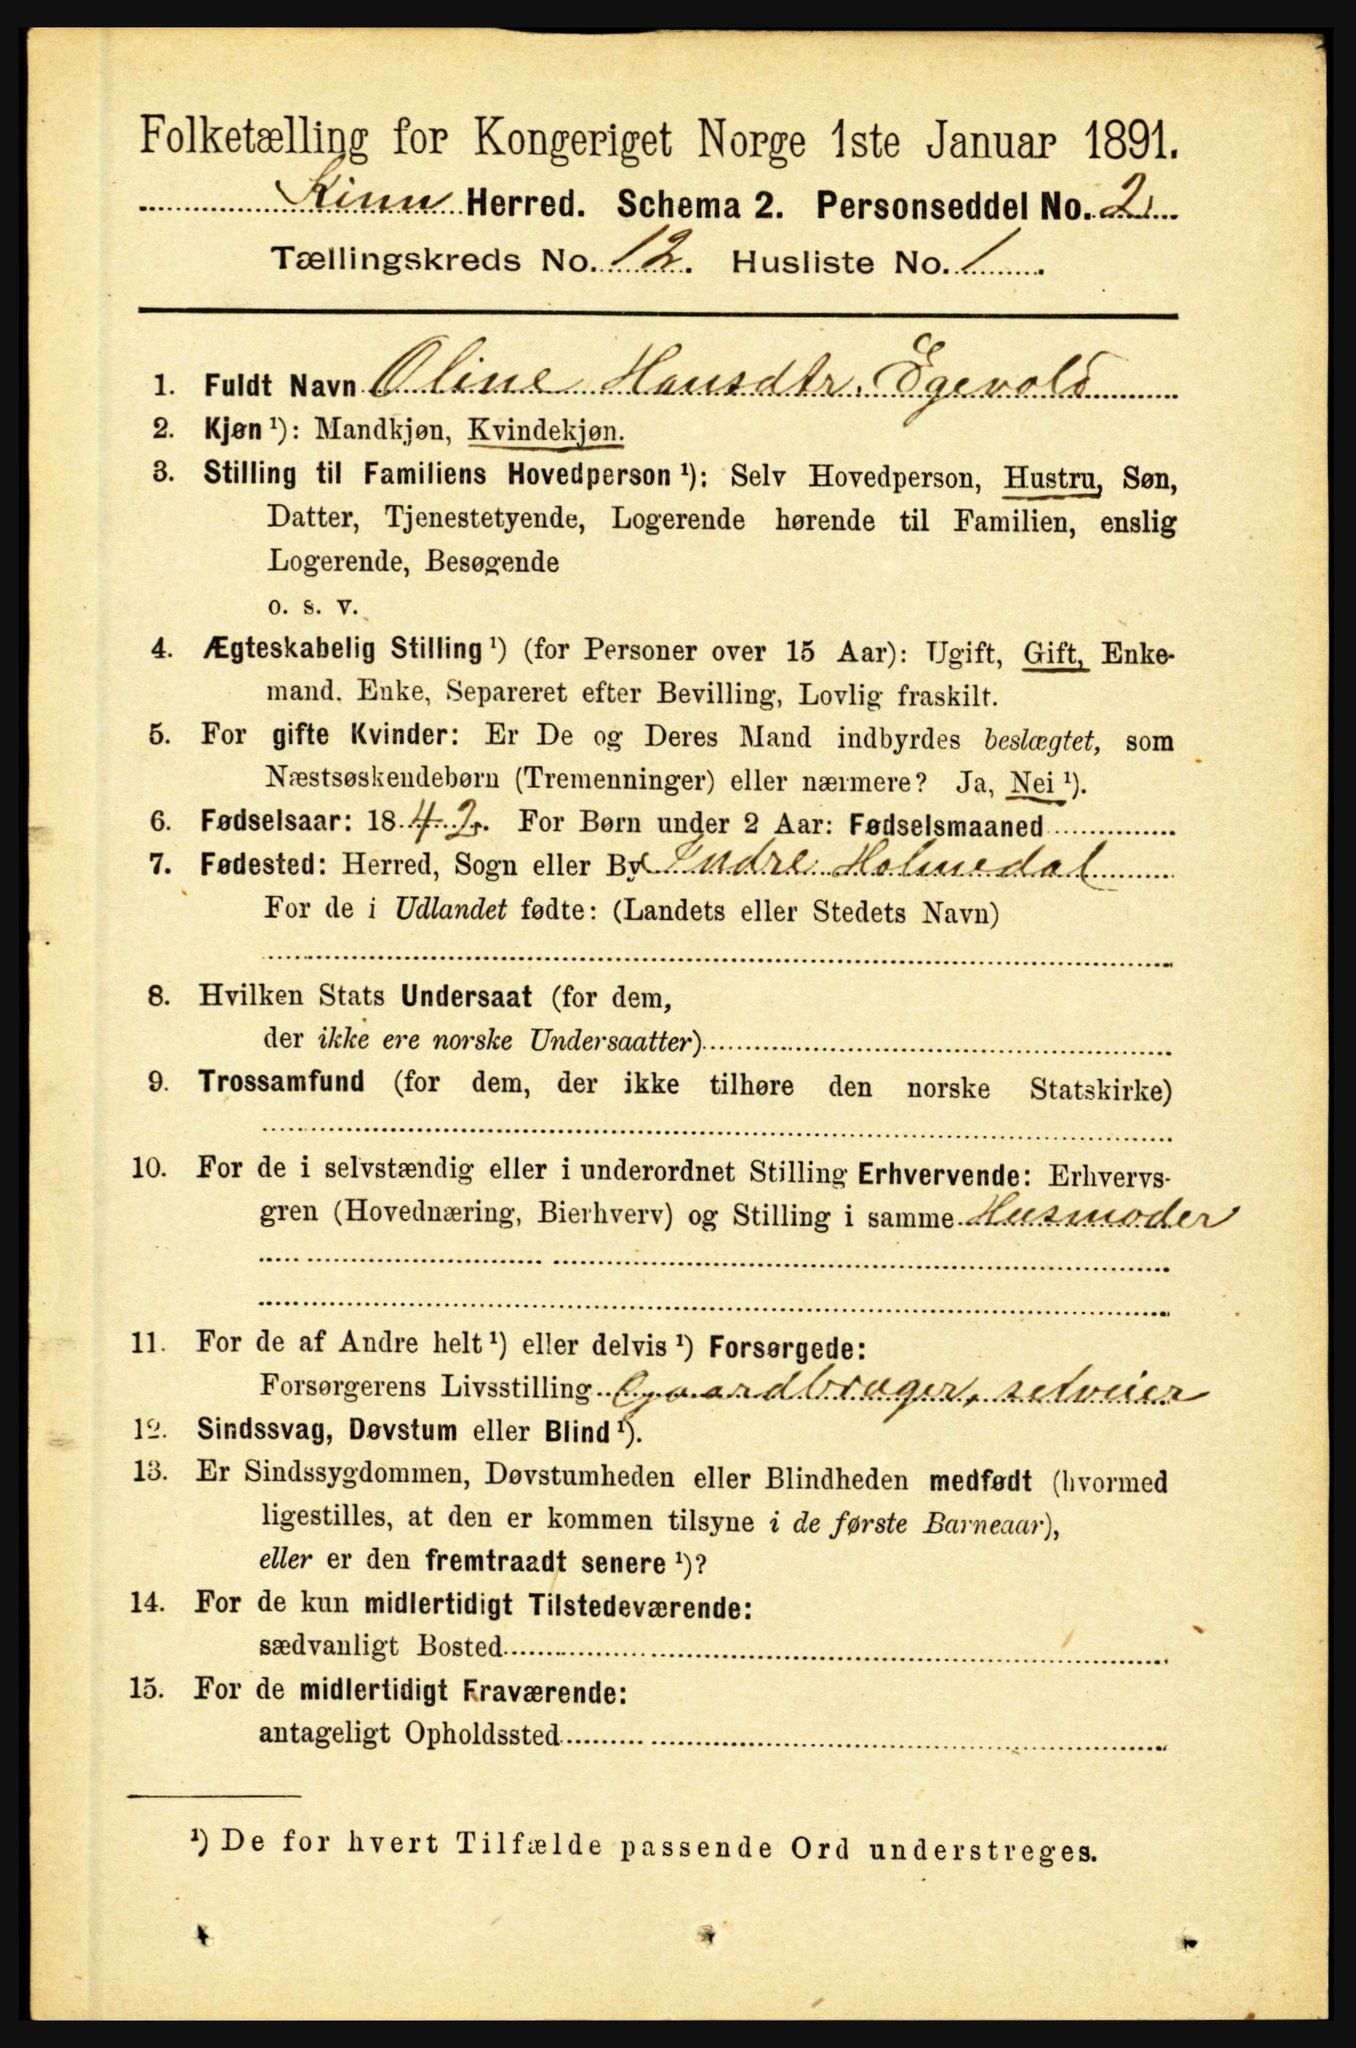 Folketælling for Kongeriget Norge 1ste Januar 1891.
Kinn Herred. Schema 2. Personseddel No. 2
Tællingskreds No. 12. Husliste No. 1
1. Fuldt Navn Oline Hansdtr. Egevold
2. Kjøn ¹): Mandkjøn, Kvindekjøn.
3. Stilling til Familiens Hovedperson ¹): Selv Hovedperson, Hustru, Søn,
Datter, Tjenestetyende, Logerende hørende til Familien, enslig
Logerende, Besøgende
o. s. v.
4. Ægteskabelig Stilling ¹) (for Personer over 15 Aar): Ugift, Gift, Enke-
mand. Enke, Separeret efter Bevilling, Lovlig fraskilt.
5. For gifte Kvinder: Er De og Deres Mand indbyrdes beslægtet, som
Næstsøskendebørn (Tremenninger) eller nærmere? Ja, Nei ¹).
6. Fødselsaar: 1842. For Børn under 2 Aar: Fødselsmaaned
7. Fødested: Herred, Sogn eller By Indre Holmedal
For de i Udlandet fødte: (Landets eller Stedets Navn)
8. Hvilken Stats Undersaat (for dem,
der ikke ere norske Undersaatter)
9. Trossamfund (for dem, der ikke tilhøre den norske Statskirke)
10. For de i selvstændig eller i underordnet Stilling Erhvervende: Erhvervs-
gren (Hovednæring, Bierhverv) og Stilling i samme Husmoder
11. For de af Andre helt ¹) eller delvis ¹) Forsørgede:
Forsørgerens Livsstilling Gaardbruger, selveier
12. Sindssvag, Døvstum eller Blind ¹).
13. Er Sindssygdommen, Døvstumheden eller Blindheden medfødt (hvormed
ligestilles, at den er kommen tilsyne i de første Barneaar),
eller er den fremtraadt senere ¹)?
14. For de kun midlertidigt Tilstedeværende:
sædvanligt Bosted
15. For de midlertidigt Fraværende:
antageligt Opholdssted
¹) De for hvert Tilfælde passende Ord understreges.